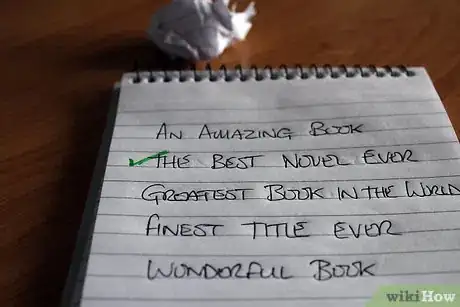 AN AMAZING BOOK
THE BEST NOVEL EVER
GREATEST BOOK IN THE WORLD
FINEST TITLE EVER
WONDERFUL BOOK
wikiHow